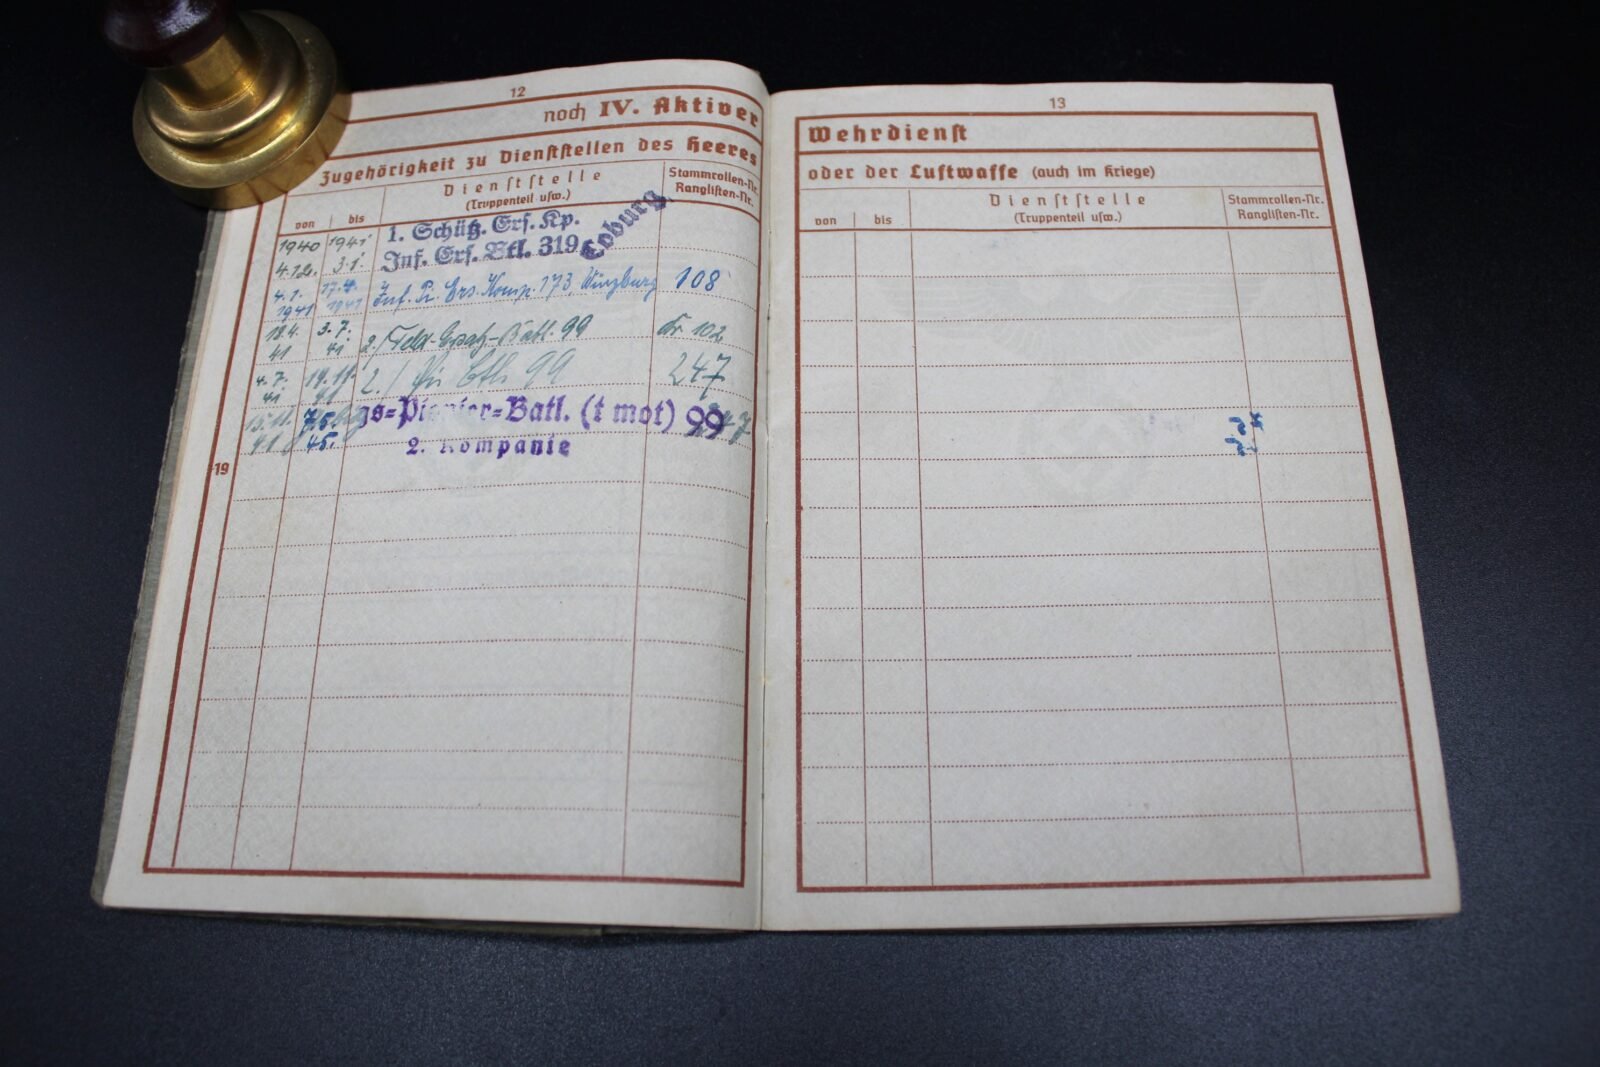 12
noch IV. Aktiver
Zugehörigkeit zu Dienststellen des Heeres
von
bis
Dienststelle
(Truppenteil usw.)
Stammrollen-Nr.
Ranglisten-Nr.
1940 1941 1. Schütz. Ers. Kp.
4.12. 3.1. Inf. Ers. Btl. 319 Coburg
4.1. 17.4. Inf. Pi. Ers. Komp. 173, Würzburg 108
1941 1941
18.4. 3.7. 2./Feld-Ersatz-Batl. 99 Nr 102
41 41
4.7. 14.11. 2./ 99 247
41 41
15.11. 7.5. gs-Pionier-Batl. (t mot) 99 247
41 45. 2. Kompanie
19
13
Wehrdienst
oder der Luftwaffe (auch im Kriege)
von
bis
Dienststelle
(Truppenteil usw.)
Stammrollen-Nr.
Ranglisten-Nr.